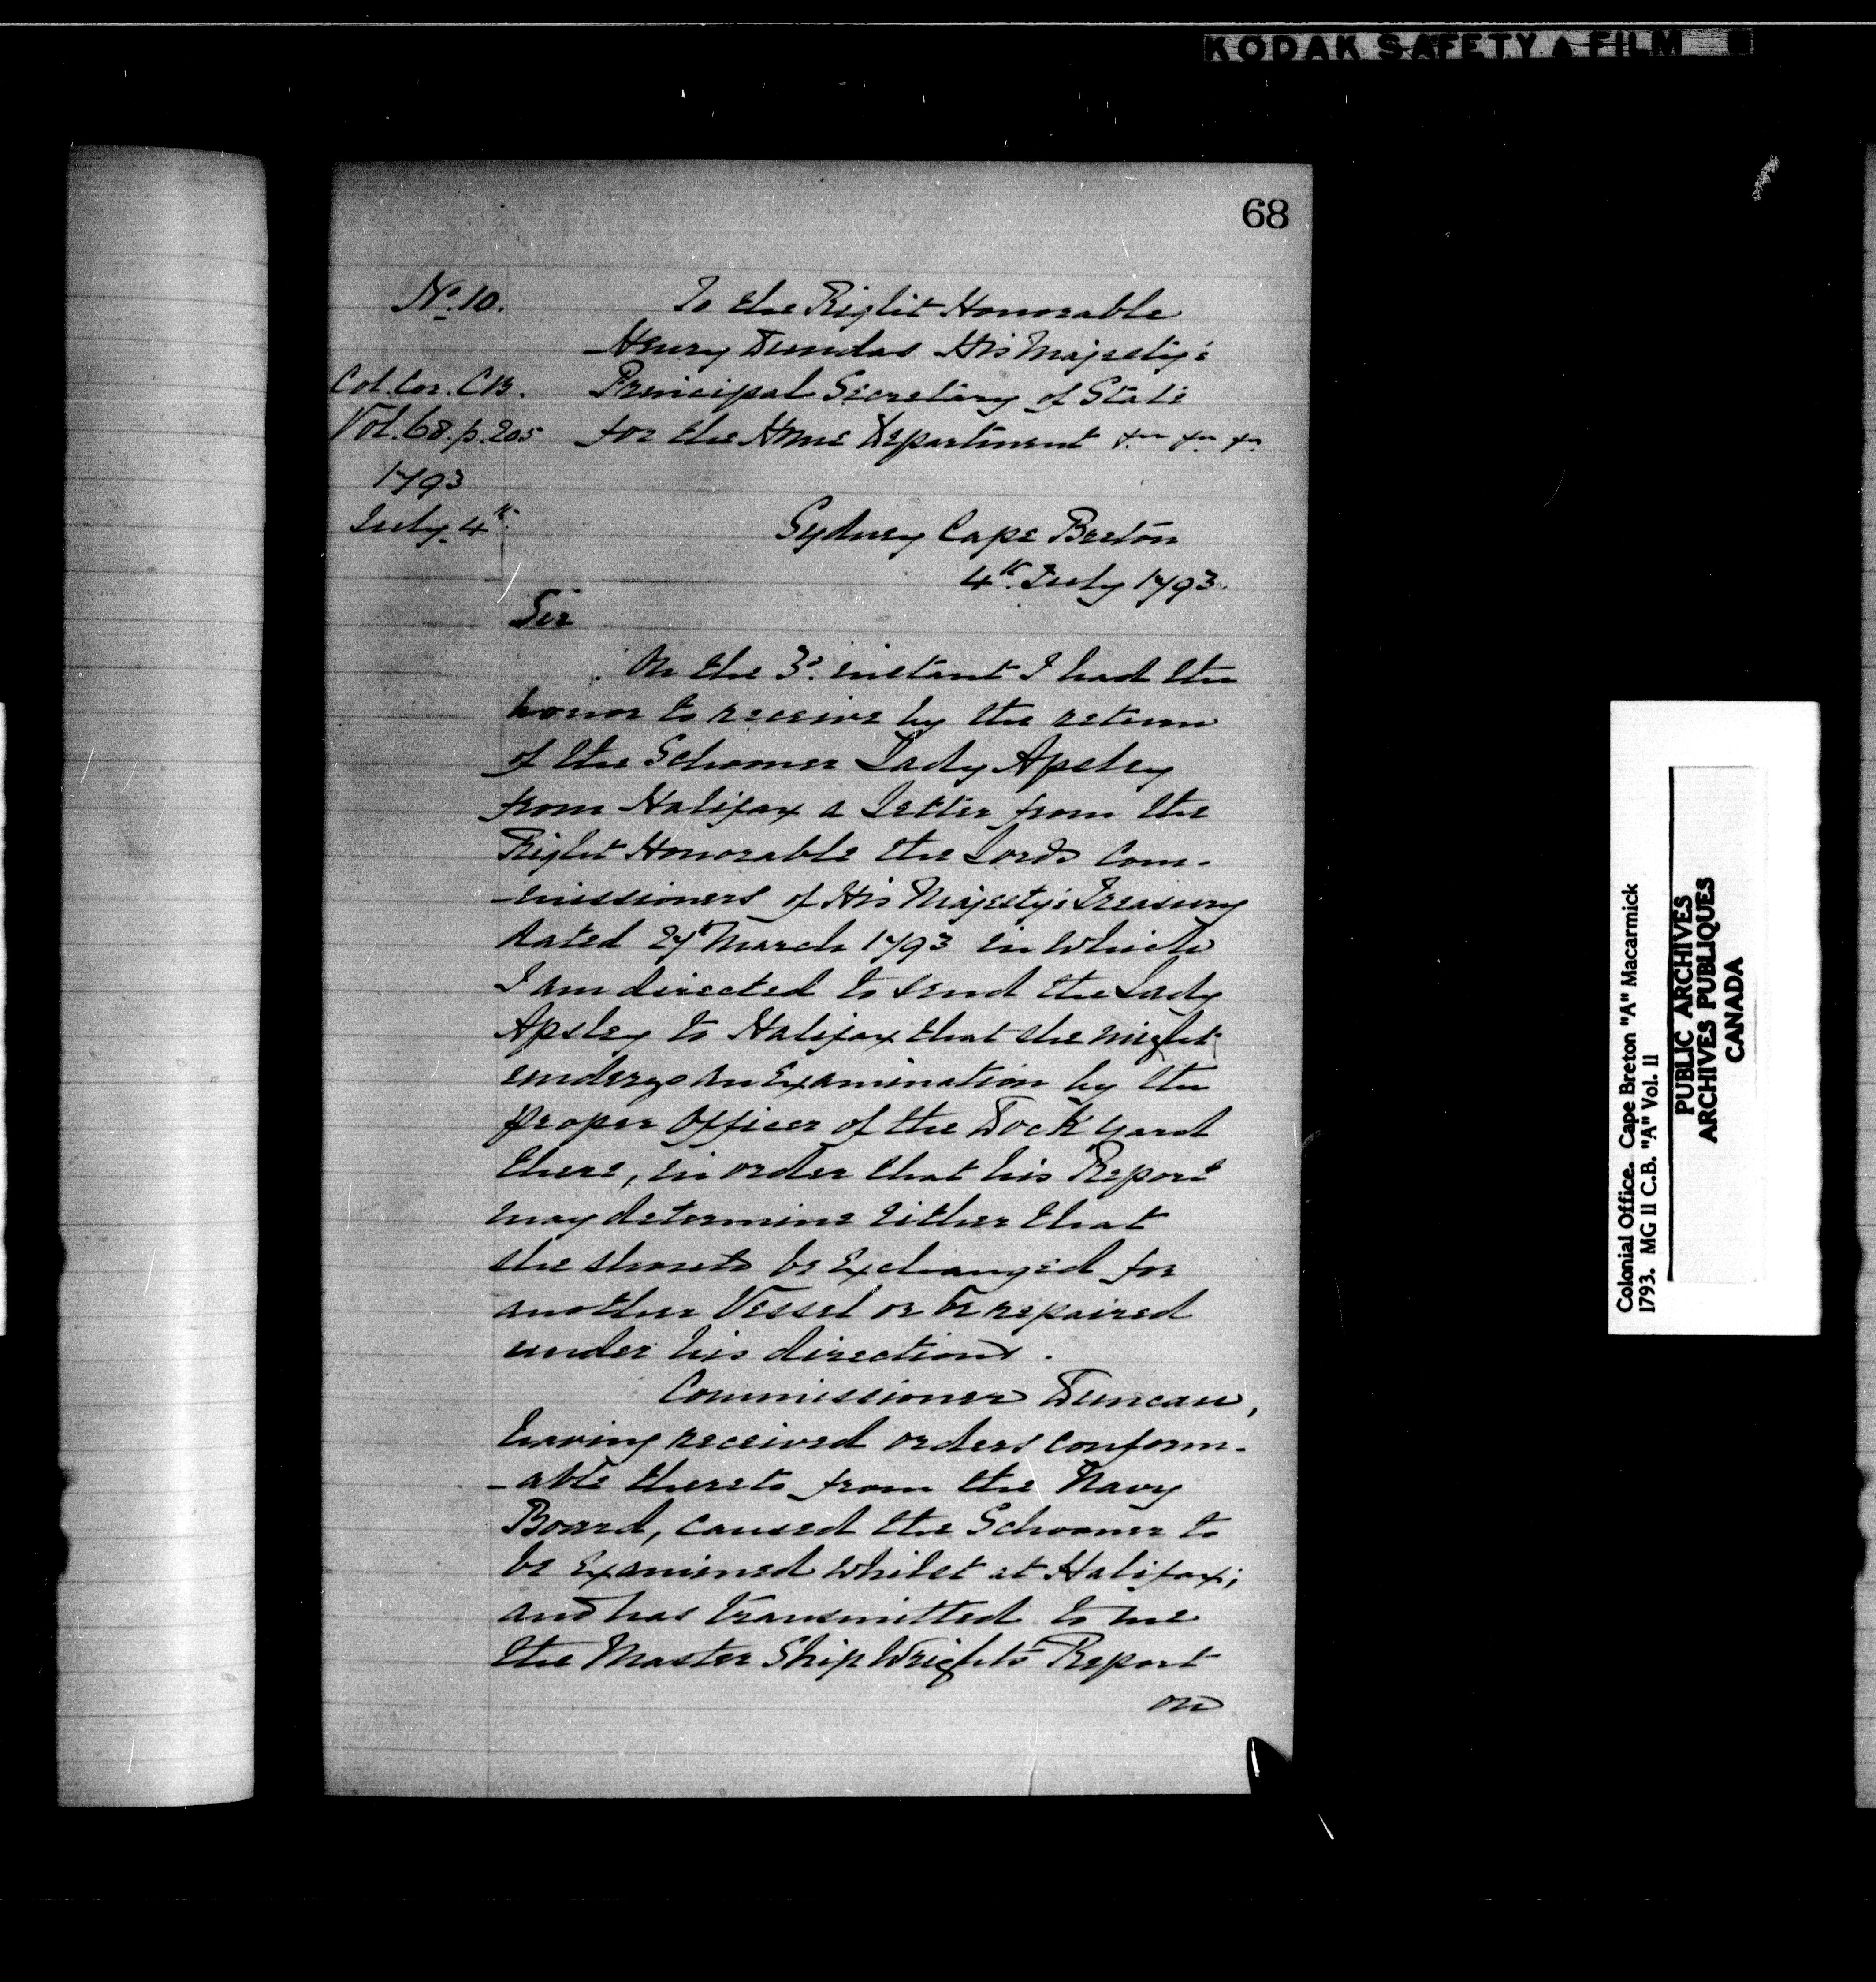 KODAK SAFETY FILM
68
No. 10.
To the Right Honorable
Henry Dundas His Majesty's
Col. Cor. C.B.
Principal Secretary of State
Vol. 68. p. 205
for the Home Department &c &c &c
1793
July 4th
Sydney Cape Breton
4th July 1793.
Sir
On the 3d. instant I had the
honor to receive by the return
of the Schooner Lady Apsley
from Halifax a Letter from the
Right Honorable the Lords Com-
-missioners of His Majesty's Treasury
dated 27th March 1793 in which
I am directed to send the Lady
Apsley to Halifax that she might
undergo an Examination by the
proper Officer of the Dock Yard
there, in order that his Report
may determine either that
she should be Exchanged for
another Vessel or be repaired
under his directions.
Commissioner Duncan,
having received orders conform-
-able thereto from the Navy
Board, caused the Schooner to
be Examined whilst at Halifax;
and has transmitted to me
the Master Ship Wright's Report
on
Colonial Office. Cape Breton "A" Macarmick
1793. MG 11 C.B. "A" Vol. 11
PUBLIC ARCHIVES
ARCHIVES PUBLIQUES
CANADA